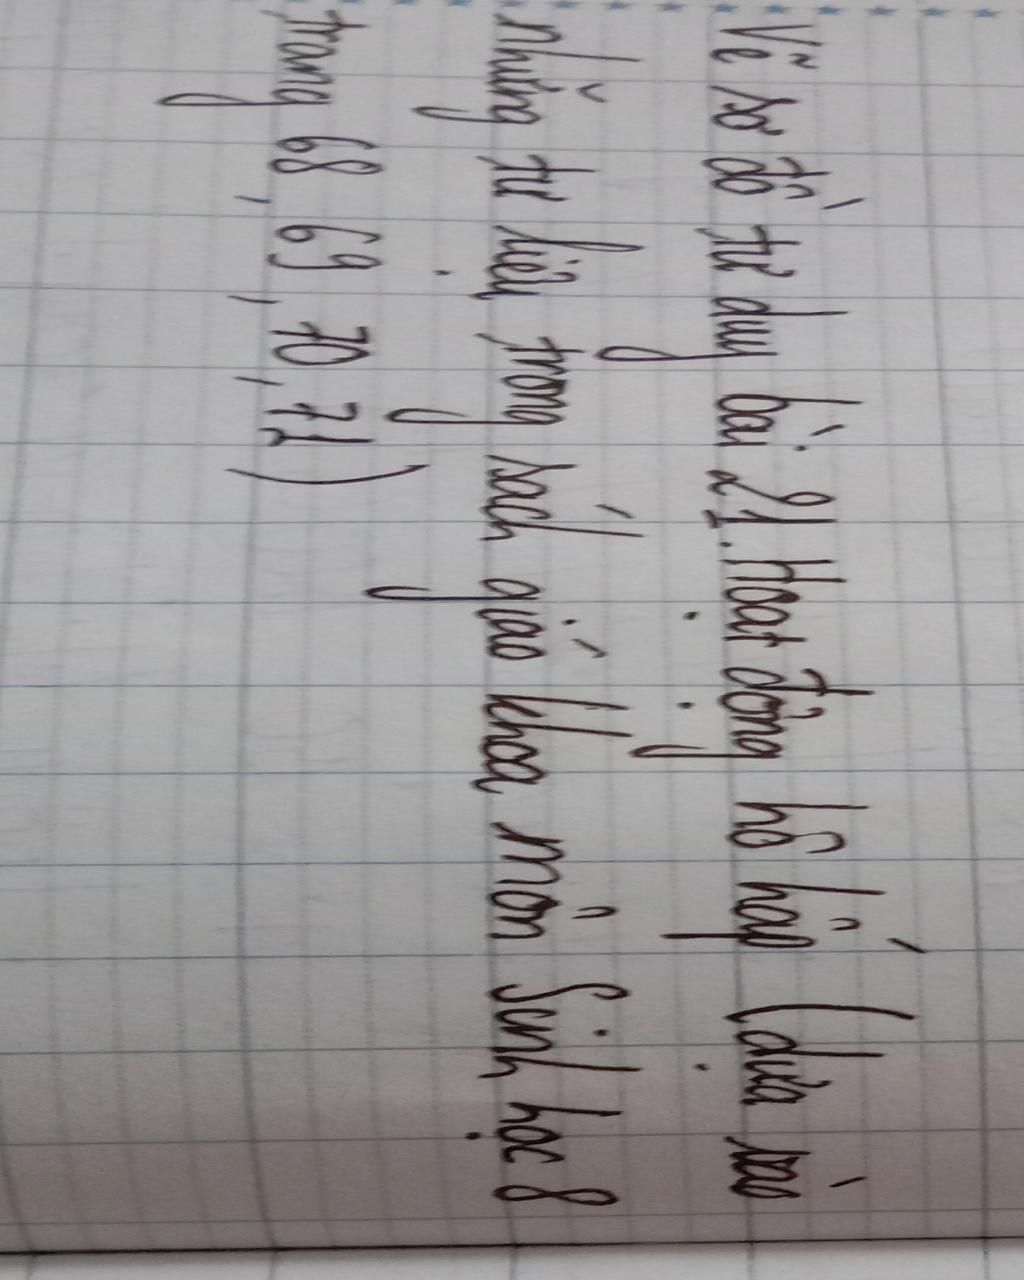 Vẽ sơ đồ tư duy bài 21. Hoạt động hô hấp (dựa vào
những tư liệu trong sách giáo khoa môn Sinh học 8
trang 68, 69, 70, 71)